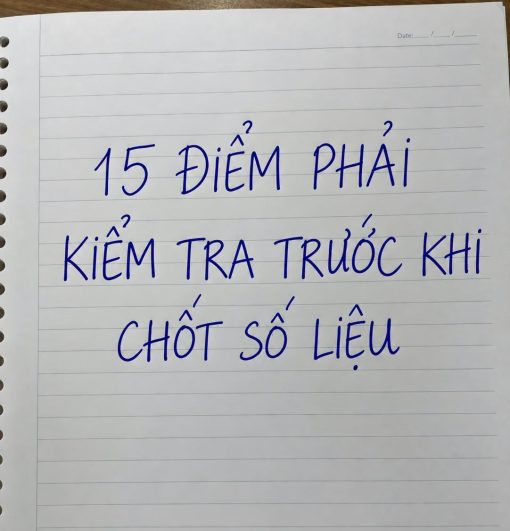 Date:___/___/___
15 ĐiỂM PHẢi
KiỂM TRA TRƯỚC KHi
CHỐT SỐ LiỆU